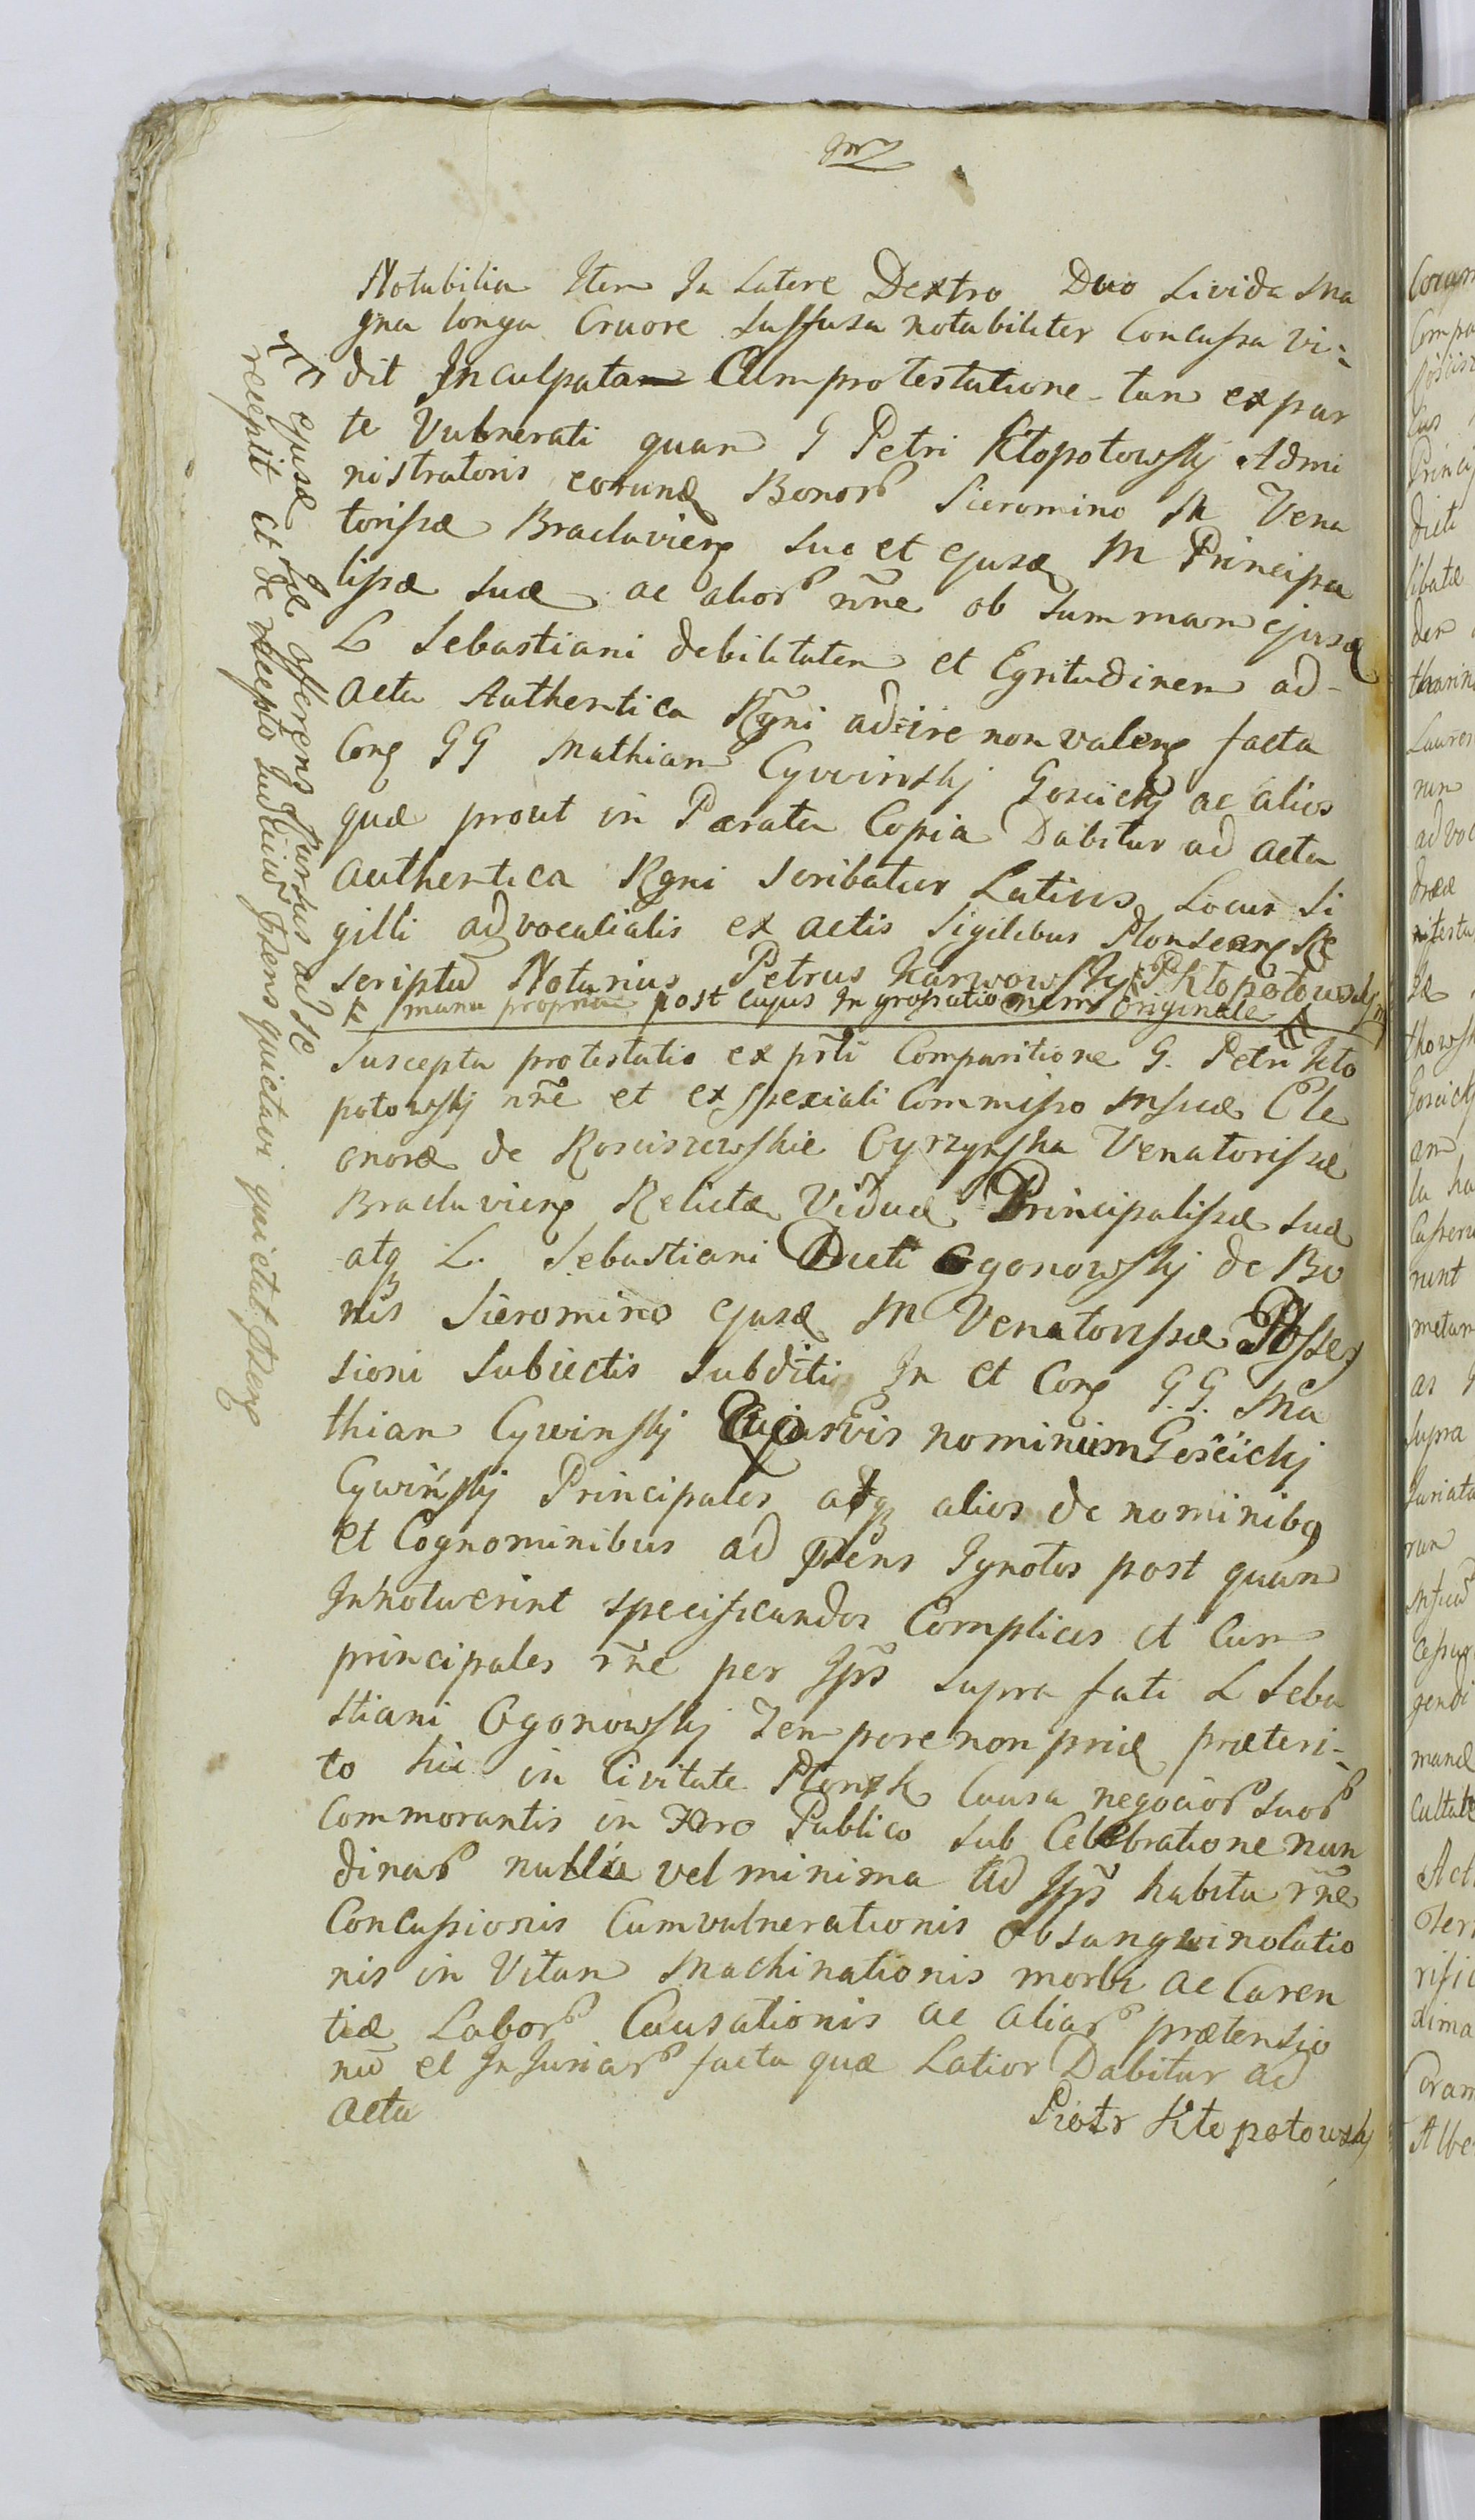 Notabilia Item In Latere Dextro Duo Livida Ma
gna longa Cruore Suffusa notabiliter Concussa vi-
dit Inculpata Cum protestatione tam ex par
te Vulnerati quam G Petri Kłopotowskj Admi
nistratoris eorund Bonor Sieromino M Vena
torissæ Braclaviens Suo et ejusd M Principa
lissæ Suæ ac alior nne ob Summam ejusd
L Sebastiani debilitatem et Egritudinem ad-
acta Authentica Rgni ad-ire non valens facta
Cong GG Mathiam Cywinskj Goscickj ac alios
quæ prout in Parata Copia Dabitur ad acta
authentica Rgni Scribatur Latius Locus Si
gilli advocatialis ex actis Sigilibus Plonscens Re
scriptu Notarius Petrus Karwowsky P Kłopotowskj
manu propria post cujus Ingrossationem originale
Suscepta protestatio ex prti Comparitione G. Petri Kło
potowskj nne et ex Speciali Commisso Msfcæ Ele
onoræ de Rosciszewskie Cyrzynska Venatorissæ
Braclaviens Relictæ Viduæ Principalissæ Suæ
atq L. Sebastiani Dicti Ogonowskj de Bo
nis Sieromino ejusd M Venatorissæ Posses
sioni Subiectis Subditi In et Cong G.G. Ma
thiam Cywinskj Cujusvis nominum Goscickj
Cywińskj Principales atq alios de nominibq
et Cognominibus ad Præns Ignotos post quam
Inhotuerint specificandos Complices et Com
principales rne per Ipss Supra fati L Seba
stiani Ogonowskj Tempore non prid præteri-
to hic in Civitate Plonsk Causa negocior Suor
Commorantis in Foro Publico Sub Celebratione nun
dinar nulla vel minima ad Ipss habita rne
Concussionis Cumvulnerationis Obsangvinolatio
nis in Vitam Machinationis morbi ac Caren
tiæ Labor Causationis ac aliar prætensio
nu et InJuriar facta quæ Latior Dabitur ad
acta
Piotr Kłopotowskj
ejusd Id offerens Rursus ad se
recepit et de recepto Judiciu Præns quictavi quictat Præns